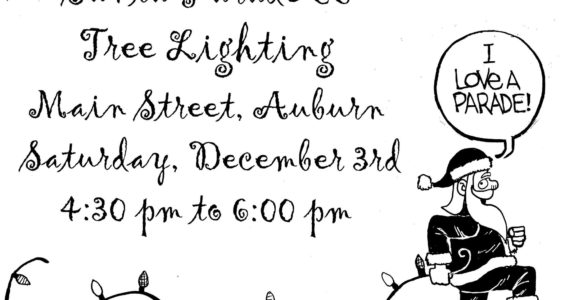 Tree Lighting
Main Street, Auburn
Saturday, December 3rd
4:30 pm to 6:00 pm
I
LOVE A
PARADE!